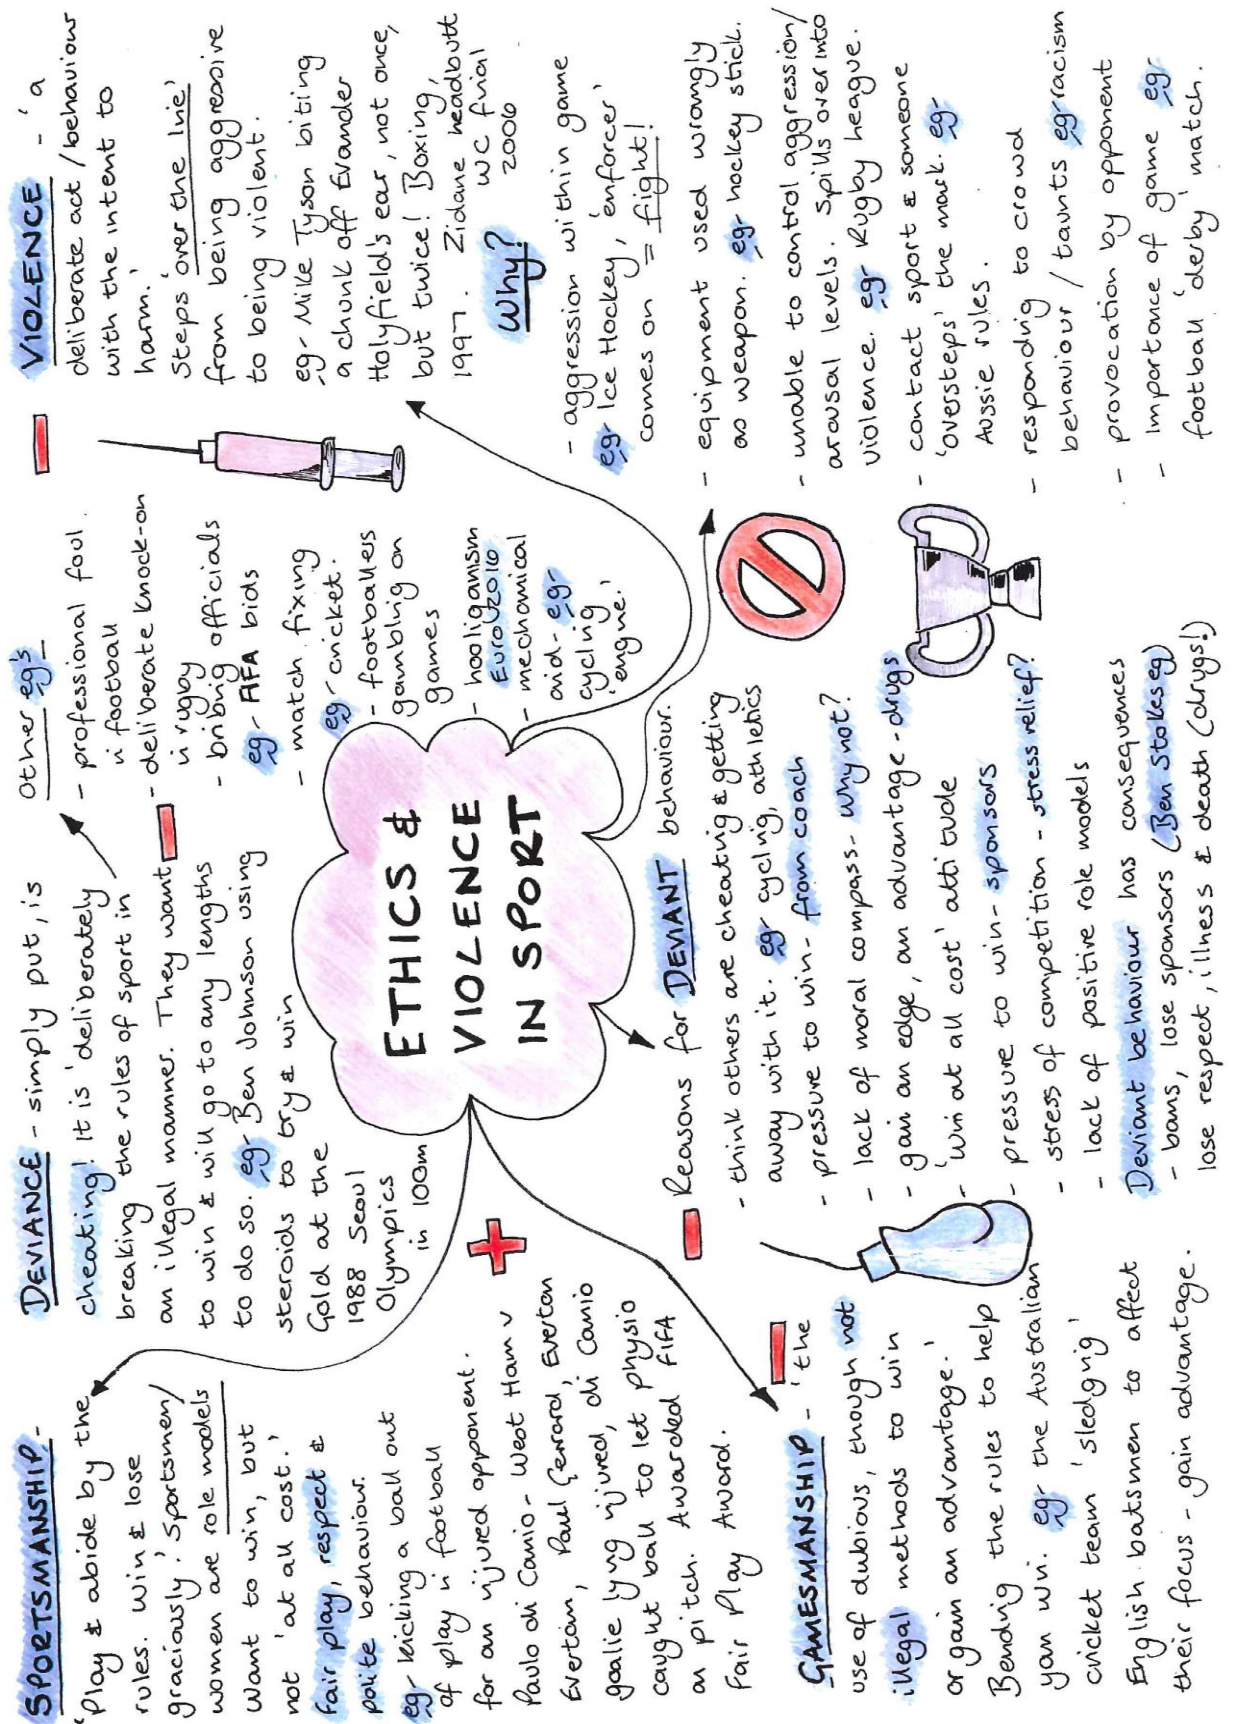 SPORTSMANSHIP -
'Play & abide by the
rules. Win & lose
graciously.' Sportsmen/
women are role models
Want to win, but
not 'at all cost.'
Fair play, respect &
polite behaviour.
eg- kicking a ball out
of play in football
for an injured opponent.
Paulo di Canio - West Ham v
Everton, Paul Gerrard, Everton
goalie lying injured, di Canio
caught ball to let physio
on pitch. Awarded FIFA
Fair Play Award.
+
GAMESMANSHIP - 'the
use of dubious, though not
illegal methods to win
or gain an advantage.'
Bending the rules to help
you win. eg- the Australian
cricket team 'sledging'
English batsmen to affect
their focus - gain advantage.
DEVIANCE - simply put, is
cheating! It is 'deliberately
breaking the rules of sport in
an illegal manner. They want
to win & will go to any lengths
to do so. eg- Ben Johnson using
steroids to try & win
Gold at the
1988 Seoul
Olympics
in 100m
Other eg's
- professional foul
in football
- deliberate knock-on
in rugby
- bribing officials
eg- FIFA bids
- match fixing
eg- cricket.
- footballers
gambling on
games
- hooliganism
Euro U2016
- mechanical
aid - eg-
cycling
'engine.'
ETHICS &
VIOLENCE
IN SPORT
Reasons for DEVIANT behaviour.
- think others are cheating & getting
away with it. eg- cycling, athletics
- pressure to win - from coach
- lack of moral compass - why not?
- gain an edge, an advantage - drugs
- 'win at all cost' attitude
- pressure to win - sponsors
- stress of competition - stress relief?
- lack of positive role models
Deviant behaviour has consequences
- bans, lose sponsors (Ben Stokes eg)
lose respect, illness & death (drugs!)
VIOLENCE - 'a
deliberate act / behaviour
with the intent to
harm.'
Steps 'over the line'
from being aggressive
to being violent.
eg- Mike Tyson biting
a chunk off Evander
Holyfield's ear, not once,
but twice! Boxing,
1997. Zidane headbutt
WC final
2006
Why?
- aggression within game
eg- Ice Hockey, 'enforcer'
comes on = fight!
- equipment used wrongly
as weapon. eg- hockey stick.
- unable to control aggression/
arousal levels. Spills over into
violence. eg- Rugby league.
- contact sport & someone
'oversteps' the mark. eg-
Aussie rules.
- responding to crowd
behaviour / taunts eg- racism
- provocation by opponent
- importance of game eg-
football 'derby' match.